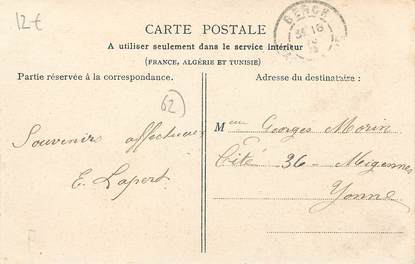 12€
CARTE POSTALE
A utiliser seulement dans le service intérieur
(FRANCE, ALGÉRIE ET TUNISIE)
BERCK
Partie réservée à la correspondance.
Adresse du destinataire :
62
Souvenir affectueux
E. Lapert
Mr Georges Morin
Cité 36 - Migennes
Yonne